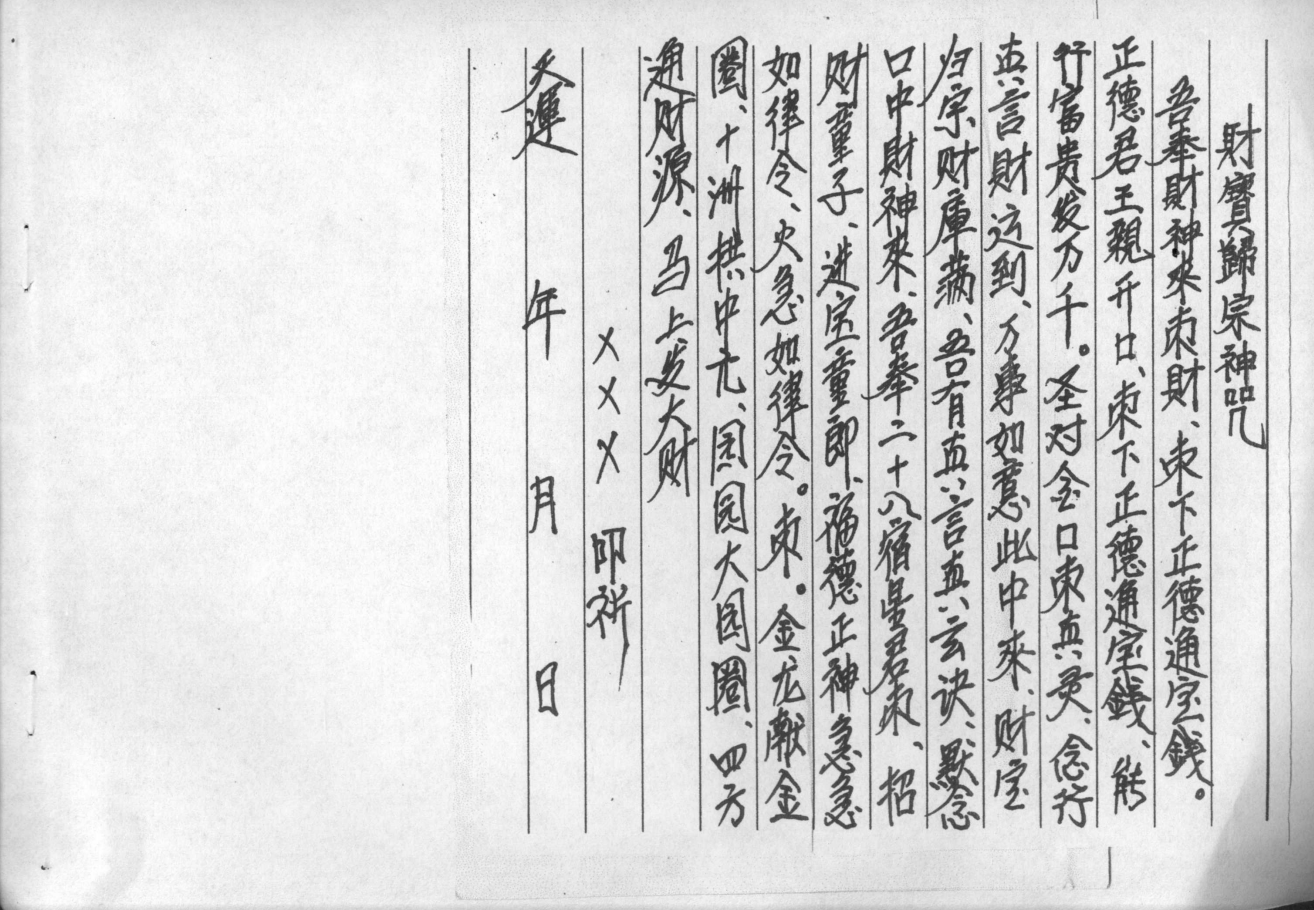 財寶歸宗神咒
吾奉財神來束財、束下正德通宝錢。
正德君王親开口、束下正德通宝錢、能
行富贵发万千。圣对金口束真灵、念行
真言財运到、万事如意此中來、财宝
归宗财庫满、吾有真言真云诀、默念
口中財神來、吾奉二十八宿星君束、招
财童子、进宝童郎、福德正神急急
如律令、火急如律令。束。金龙献金
圈、十洲拱中元、园园大园圈、四方
通财源、马上发大财
××× 叩祈
天運 年 月 日